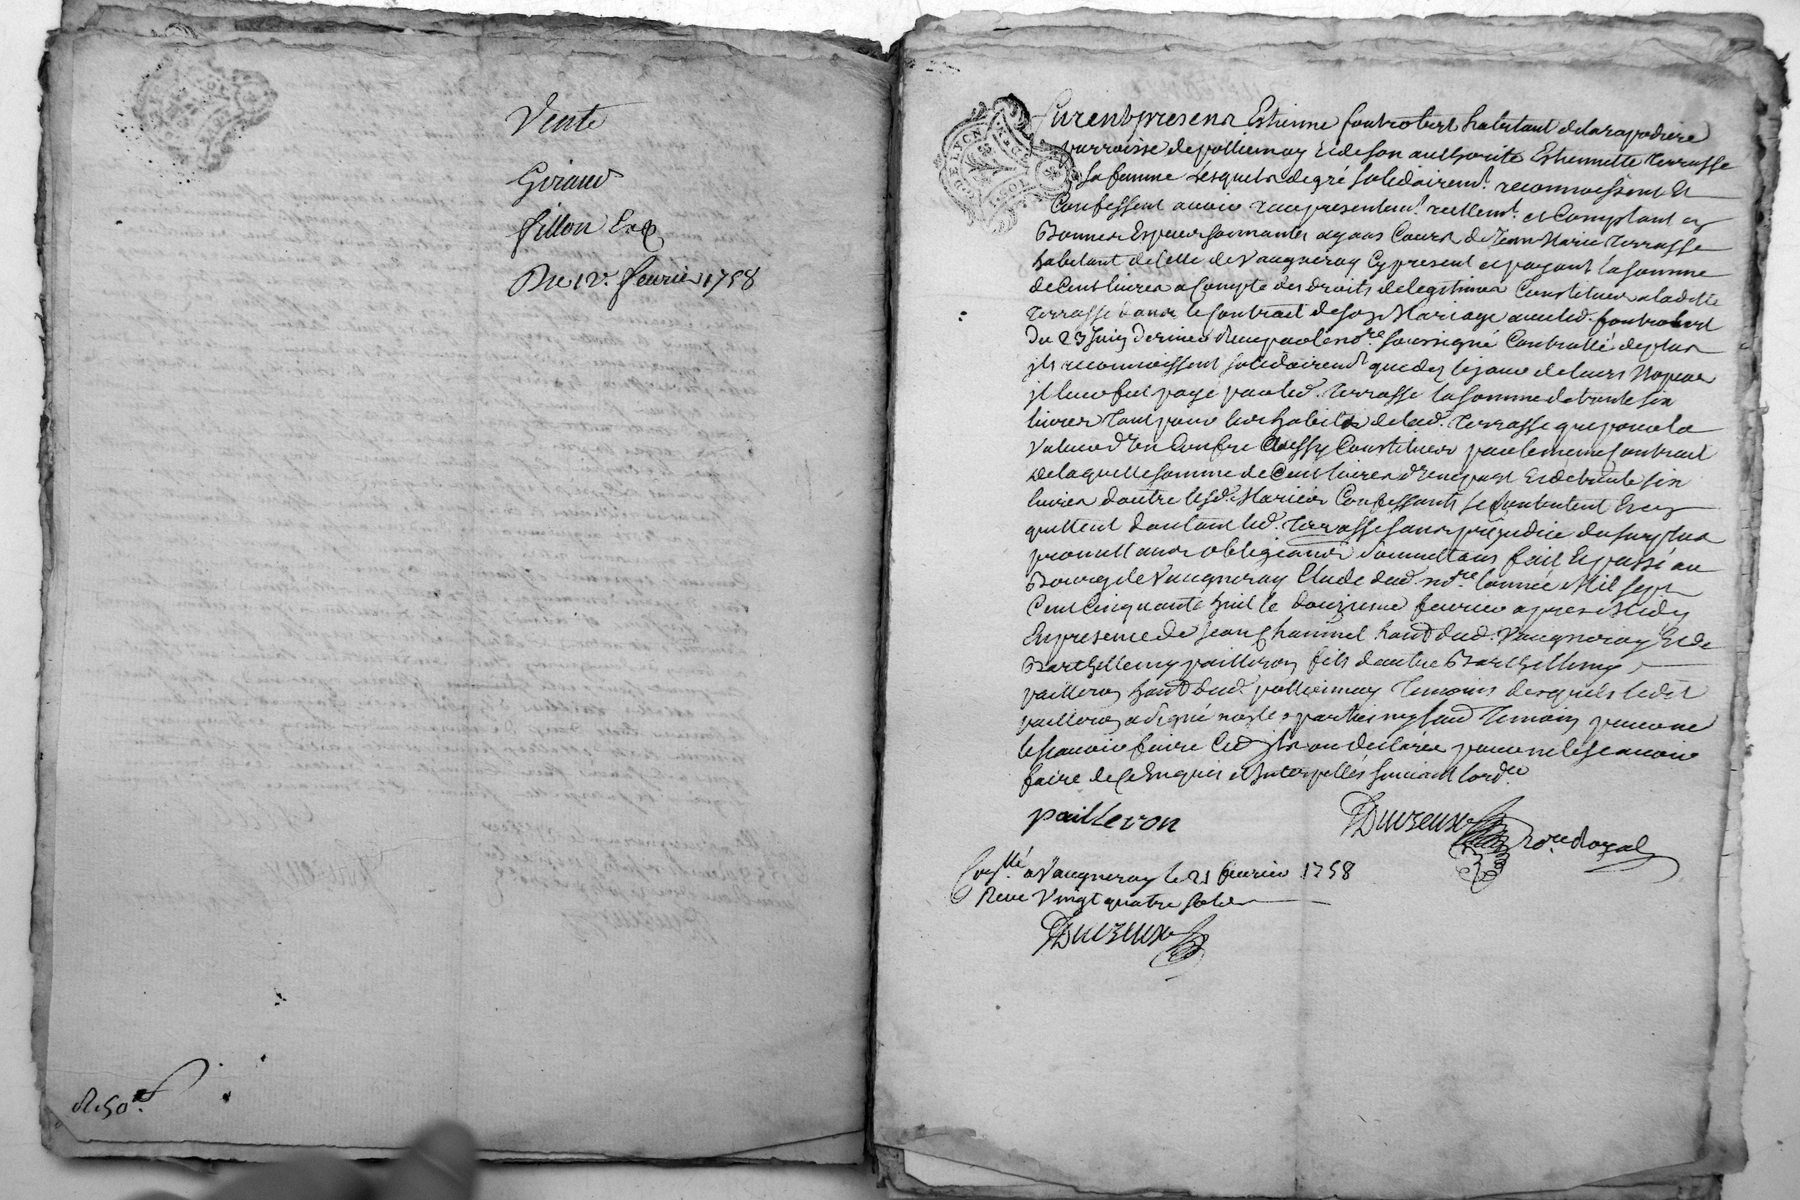 Vente
Giraud
fillon Exp
Du 12e. fevrier 1758
R 50s.
GEN. DE LYON
Furent presens Estienne fontrobert habitant de larapodiere
parroisse de pollionnay Et de son authorite Estiennette terrasse
sa femme Lesquels de gré solidairemt. reconnoissent Et
Confessent avoir reçu presentemt. reellemt. et Comptant en
Bonnes Especes sonnantes ayans Cours de Jean Marie terrasse
habitant de celle de Vaugneray Cy present et payant la somme
de Cent livres a Compte des droits de legitimes Constitues a ladtte
terrasse dans le Contrait de son Mariage avec led. fontrobert
du 23 Juin dernier Reçu par le nore. soussigné Controllé de plus
ils reconnoissent solidairemt. que dez le jour de leurs Nopces
il leur fut payé par led. terrasse la somme de trente six
livres tant pour les habits de lad. terrasse que pour la
Valeur d'un Coffre Aussy Constitues par le meme Contrait
de laquelle somme de Cent livres d'une part Et de trente six
livres d'autre lesd. Maries Confessants se Contentent Et en
quittent d'autant led. terrasse sans préjudice du surplus
promettans obligeans soumettans fait Et passé au
Bourg de Vaugneray Etude dud. nore. l'année Mil sept
Cent Cinquante huit le douzieme fevrier apres Midy
En presence de Jean Chammel hant dud. Vaugneray Et de
Barthellemy pailleron fils d'autre Barthellemy
pailleron hant dud. pollionnay temoins desquels ledit
pailleron a signé non les parties ny laud temoin pour ne
le sçavoir faire Ced ils ont declarée pour ne le sçavoir
faire de ce Enquis et Interpellés suivant lordce
pailleron
Duvzeux nore. Royal
Collé. à Vaugneray le 21 fevrier 1758
Reçu Vingt quatre sols
Duvzeux